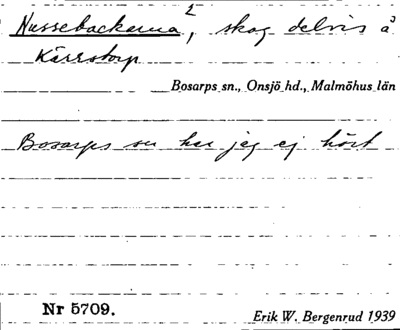 Nussebackarna², skog delvis å
Kärrstorp
Bosarps sn., Onsjö hd., Malmöhus län
Bosarps sn har jag ej hört
Nr 5709.
Erik W. Bergenrud 1939